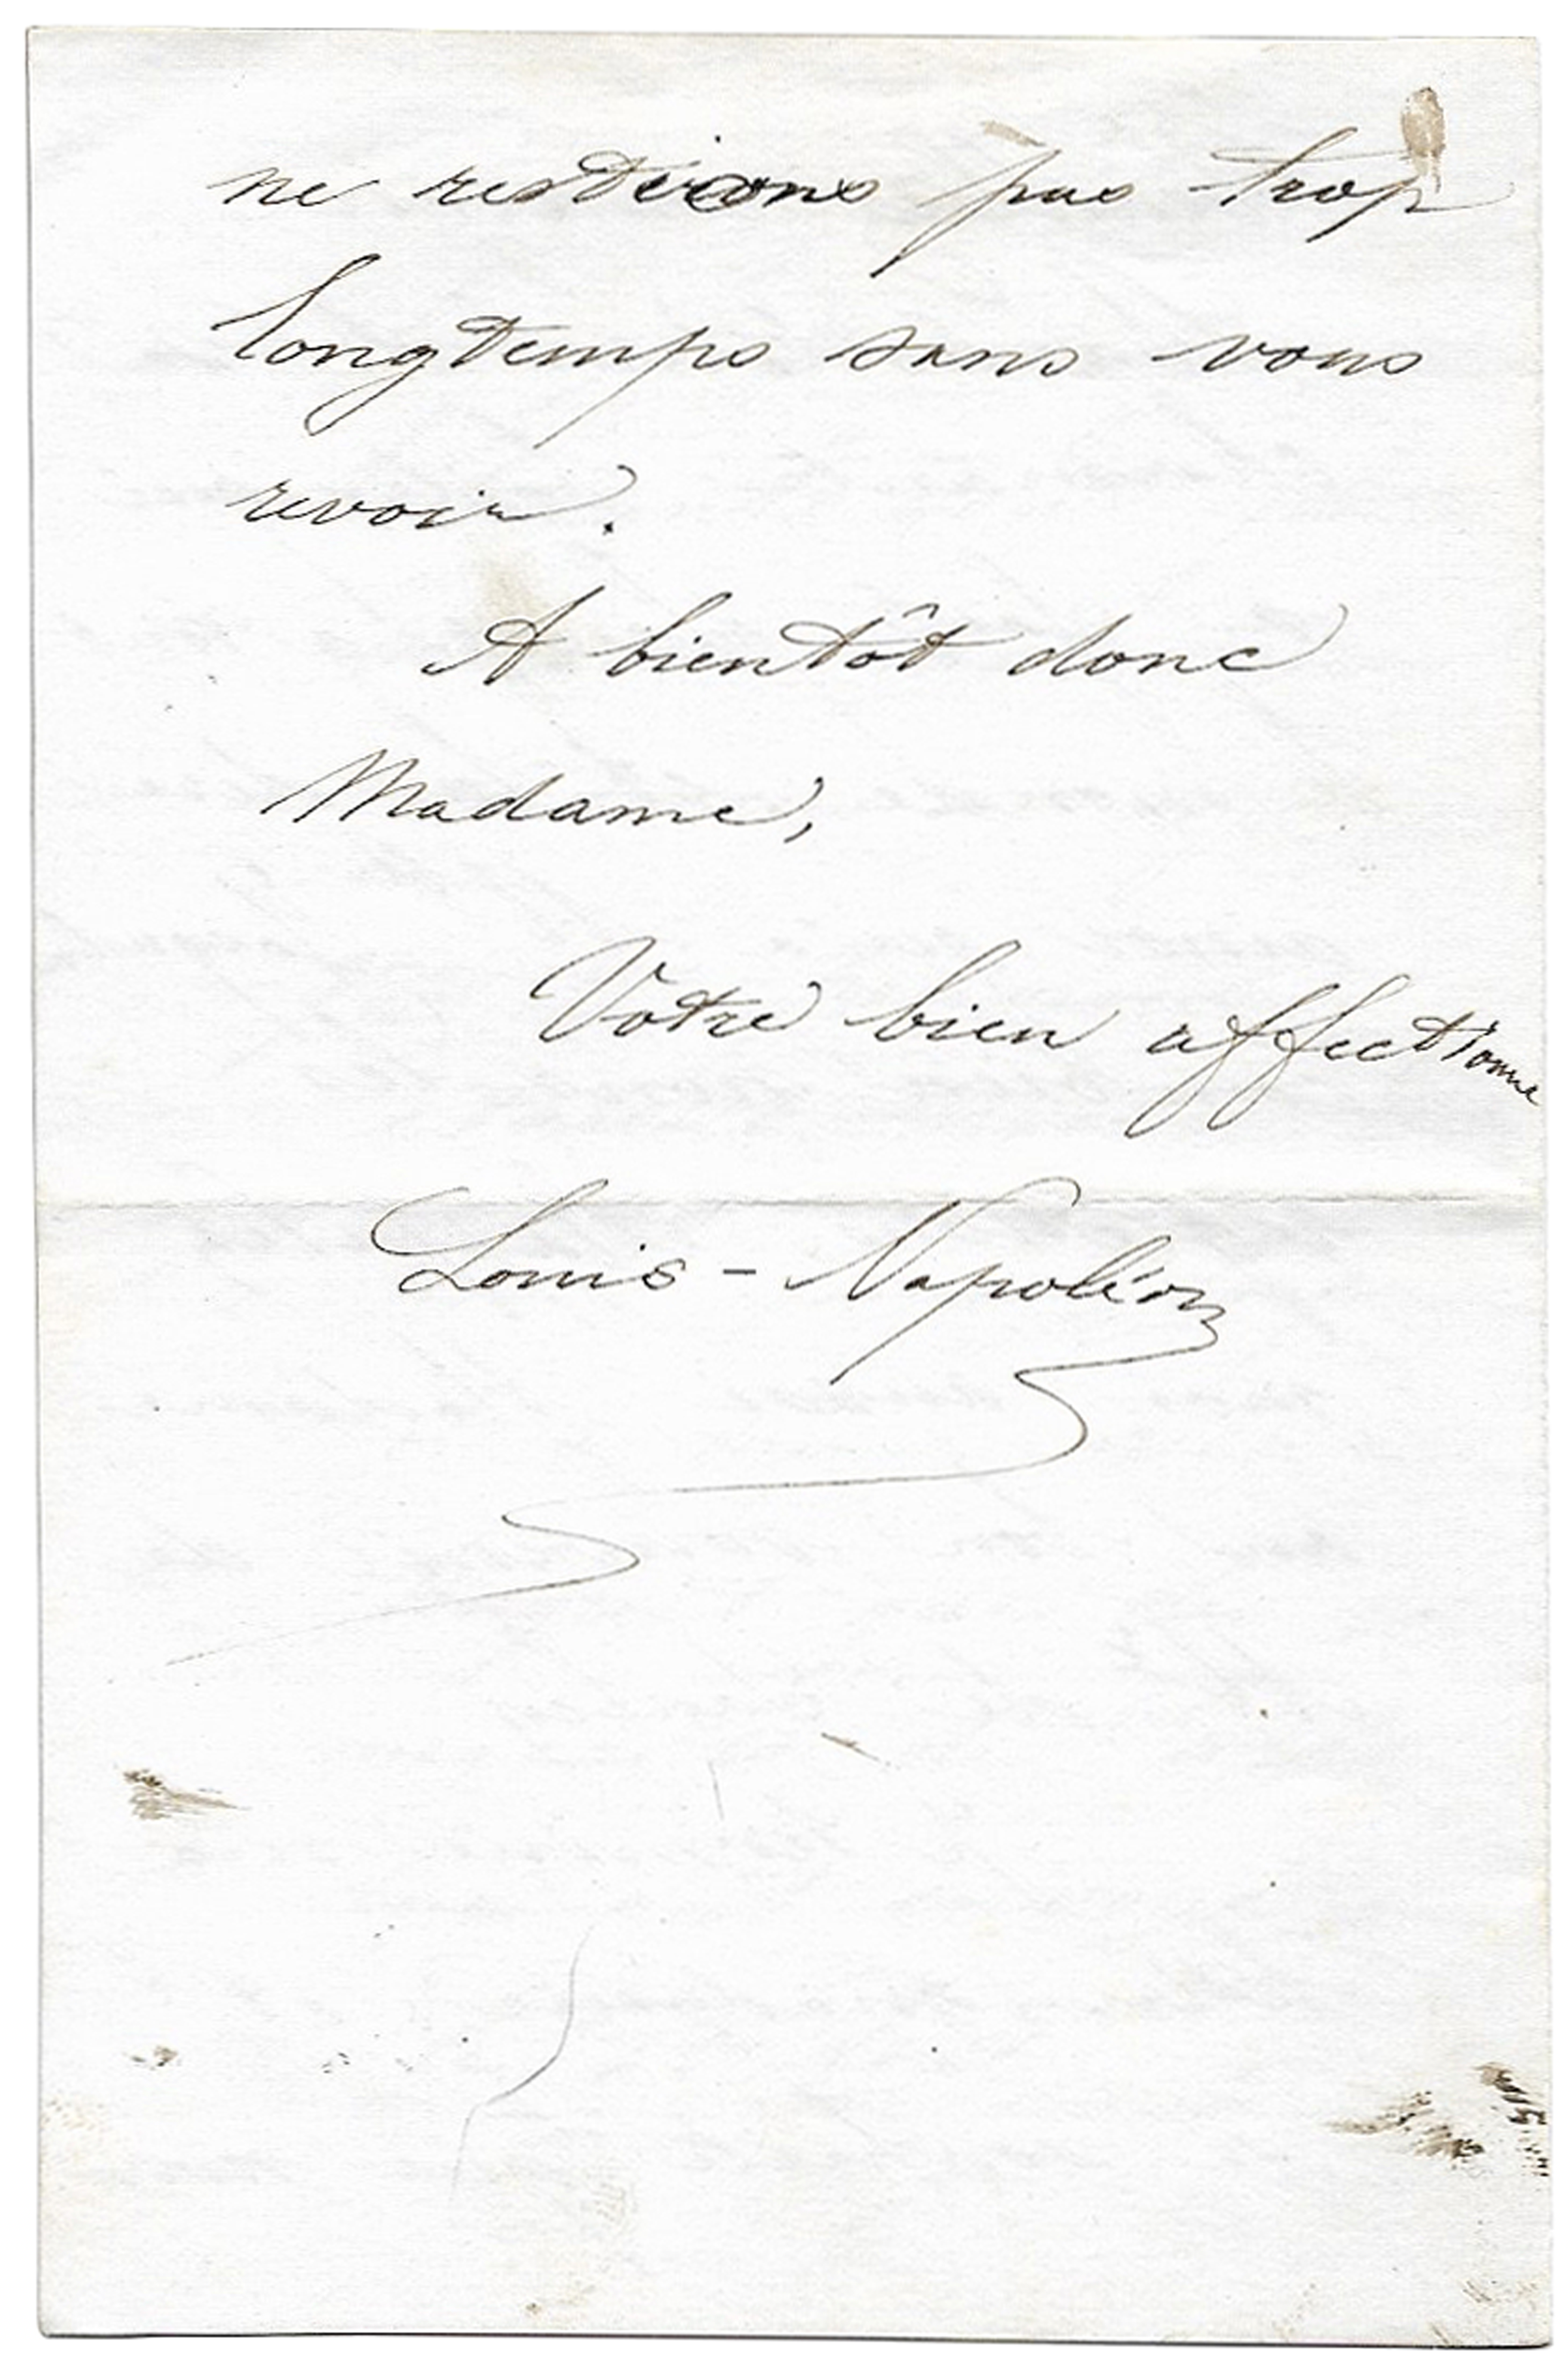 ne resterons pas trop
longtemps sans vous
revoir.
A bientôt donc
Madame,
Votre bien affectionné
Louis - Napoléon